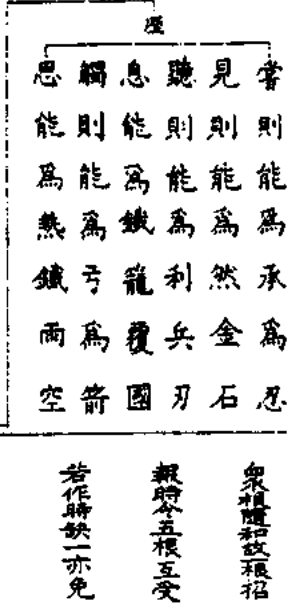 歷
嘗則能爲承爲忍
見則能爲然金石
聽則能爲利兵刃
息能爲鐵籠覆國
觸則能爲弓爲箭
思能爲熱鐵雨空
衆相隨和故根招
報時令五根互受
若作時缺一亦免